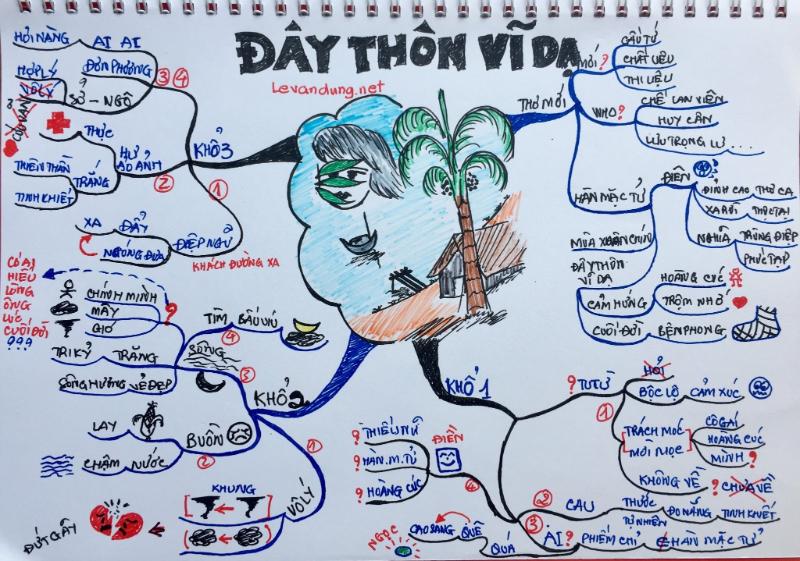 ĐÂY THÔN VĨ DẠ
Levandung.net
THƠ MỚI
MỚI ?
CẤU TỨ
CHẤT LIỆU
THI LIỆU
WHO ?
CHẾ LAN VIÊN
HUY CẬN
LƯU TRỌNG LƯ...
HÀN MẶC TỬ
ĐIÊN
ĐỈNH CAO THƠ CA
XA RỜI THỰC TẠI
NGHĨA TRÙNG ĐIỆP
PHỨC TẠP
MÙA XUÂN CHÍN
ĐÂY THÔN
VĨ DẠ
CẢM HỨNG
HOÀNG CÚC
TRỘM NHỚ
CUỐI ĐỜI
BỆN PHONG
KHỔ 1
? TU TỪ
1
HỎI
BỘC LỘ CẢM XÚC
TRÁCH MÓC
MỜI MỌC
CÔ GÁI
HOÀNG CÚC
MÌNH ?
KHÔNG VỀ ? CHƯA VỀ
2
CAU
THƯỚC
TỰ NHIÊN
ĐO NẮNG
TINH KHIẾT
3
AI ?
PHIẾM CHỈ
HÀN MẶC TỬ
QUÁ
QUÊ
CAO SANG
NGỌC
4
ĐIỀN
? THIẾU NỮ
? HÀN.M.TỬ
? HOÀNG CÚC
KHỔ 2
1
VÔ LÝ
KHUNG
ĐỨT GÃY
2
BUỒN
LAY
CHẬM NƯỚC
3
SÔNG
TRĂNG
TRI KỶ
SÔNG HƯƠNG VẺ ĐẸP
?
CHÍNH MÌNH
MÂY
GIÓ
4
TÌM BẤU VÍU
CÓ AI
HIỂU
LÒNG
ÔNG
LÚC
CUỐI ĐỜI
???
KHỔ 3
1
ĐIỆP NGỮ
KHÁCH ĐƯỜNG XA
XA ĐẨY
NGÓNG ĐƯA
2
HƯ
ẢO ẢNH
THỰC
TRẮNG
THIÊN THẦN
TINH KHIẾT
3 4
ĐƠN PHƯƠNG
AI AI
HỎI NÀNG
SỞ - NGỘ
HỢP LÝ
VÔ LÝ